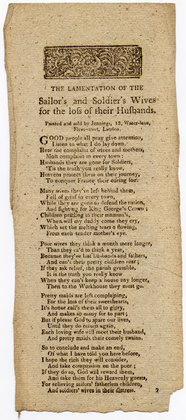 THE LAMENTATION OF THE
Sailor's and Soldier's Wives
for the loss of their Husbands.
Printed and sold by Jennings, 13, Water-lane,
Fleet-street, London.
GOOD people all pray give attention,
Listen to what I do lay down.
Hear the complaints of wives and mothers,
Most complaint in every town:
Husbands they are gone for Soldiers,
'Tis the truth you really know,
Heavens protect them on their journey,
To conquer France their enemy foe.
Many wives they've left behind them,
Full of grief in every town,
While they are gone to defend the nation,
And fighting for King George's Crown;
Children prattling to their mammy,
When will my daddy come they cry,
Which set the melting tears a flowing,
From each tender mother's eye.
Poor wives they think a month there longer,
Than they us'd to think a year,
Because they've lost husbands and fathers,
And can't their pretty children rear;
If they ask relief, the parish grumble,
It is the truth you really know
When they can't keep it any longer,
Then to the Workhouse they must go.
Pretty maids are left complaining,
For the loss of their sweethearts,
It's honor calls them all to glory,
And makes so many for to part;
But if please God to spare our lives,
Until they do return again,
Each loving wife will meet their husband,
And pretty maids their comely swain.
So to conclude and make an end,
Of what I have told you here before,
I hope the rich they will consider,
And take compassion on the poor;
If they do so, God will reward them,
And take them for his heavenly guests,
For relieving sailors' fatherless children,
And soldiers' wives in their distress.